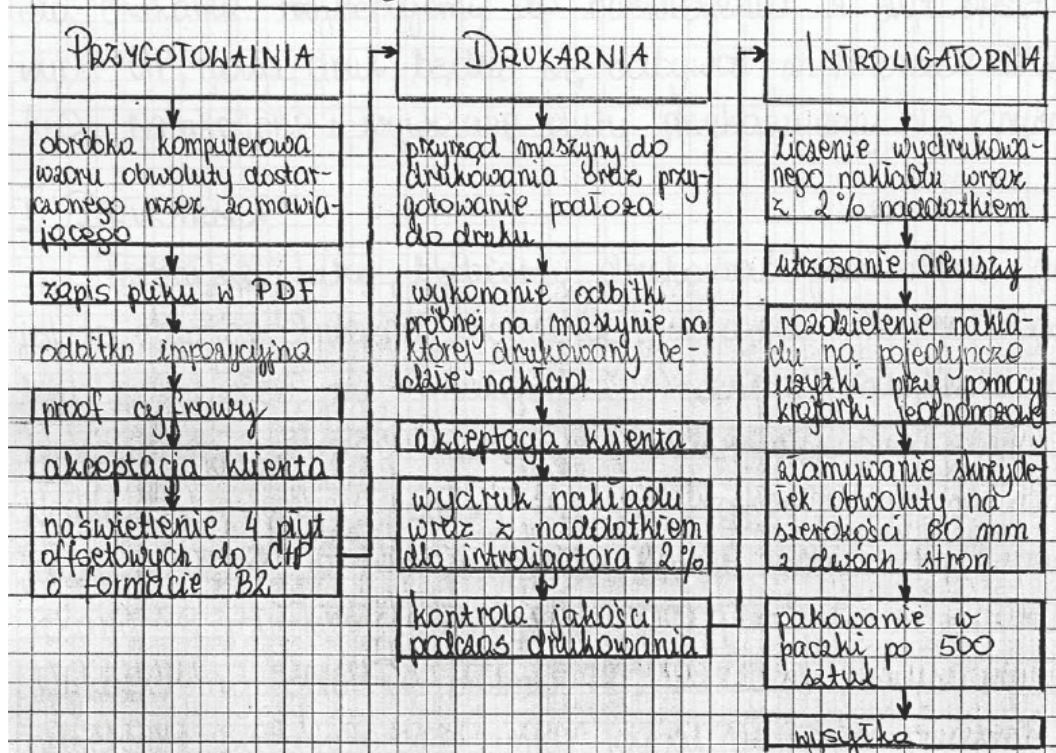 PRZYGOTOWALNIA
obróbka komputerowa
wzoru obwoluty dostar-
czonego przez zamawia-
jącego
zapis pliku w PDF
odbitka impozycyjna
proof cyfrowy
akceptacja klienta
naświetlenie 4 płyt
offsetowych do CtP
o formacie B2
DRUKARNIA
przyrząd maszyny do
drukowania oraz przy-
gotowanie podłoża
do druku
wykonanie odbitki
próbnej na maszynie na
której drukowany bę-
dzie nakład
akceptacja klienta
wydruk nakładu
wraz z naddatkiem
dla introligatora 2%
kontrola jakości
podczas drukowania
INTROLIGATORNIA
liczenie wydrukowa-
nego nakładu wraz
z 2% naddatkiem
utrząsanie arkuszy
rozdzielenie nakła-
du na pojedyncze
użytki przy pomocy
krajarki jednonożowej
złamywanie skrzyde-
łek obwoluty na
szerokości 60 mm
z dwóch stron
pakowanie w
paczki po 500
sztuk
wysyłka